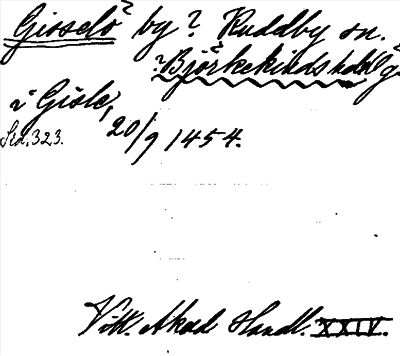 Gisselö? by? Ruddby sn.
?Björkekinds hd
i Gisle, 20/9 1454.
Sid. 323.
Vitt. Akad Handl. XXIV.